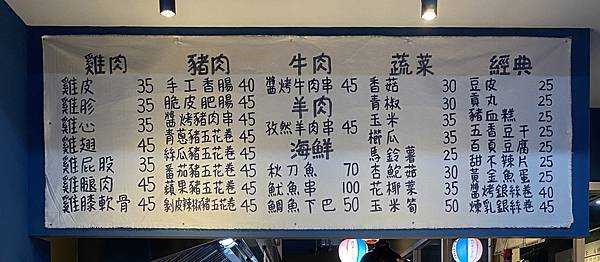 雞肉
雞皮 35
雞胗 35
雞心 35
雞翅 45
雞屁股 35
雞腿肉 45
雞膝軟骨 45
豬肉
手工香腸 40
脆皮肥腸 45
醬烤豬肉串 45
青蔥豬五花卷 45
絲瓜豬五花卷 45
番茄豬五花卷 45
蘋果豬五花卷 45
剝皮辣椒豬五花卷 45
牛肉
醬烤牛肉串 45
羊肉
孜然羊肉串 45
海鮮
秋刀魚 70
魷魚串 100
鯛魚下巴 50
蔬菜
香菇 30
青椒 30
玉米 35
櫛瓜 35
馬鈴薯 25
杏鮑菇 35
花椰菜 35
玉米筍 50
經典
豆皮 25
貢丸 25
豬血糕 25
五香豆干 25
百頁豆腐 25
甜不辣片 25
黃金魚蛋 25
醬烤銀絲卷 40
煉乳銀絲卷 45